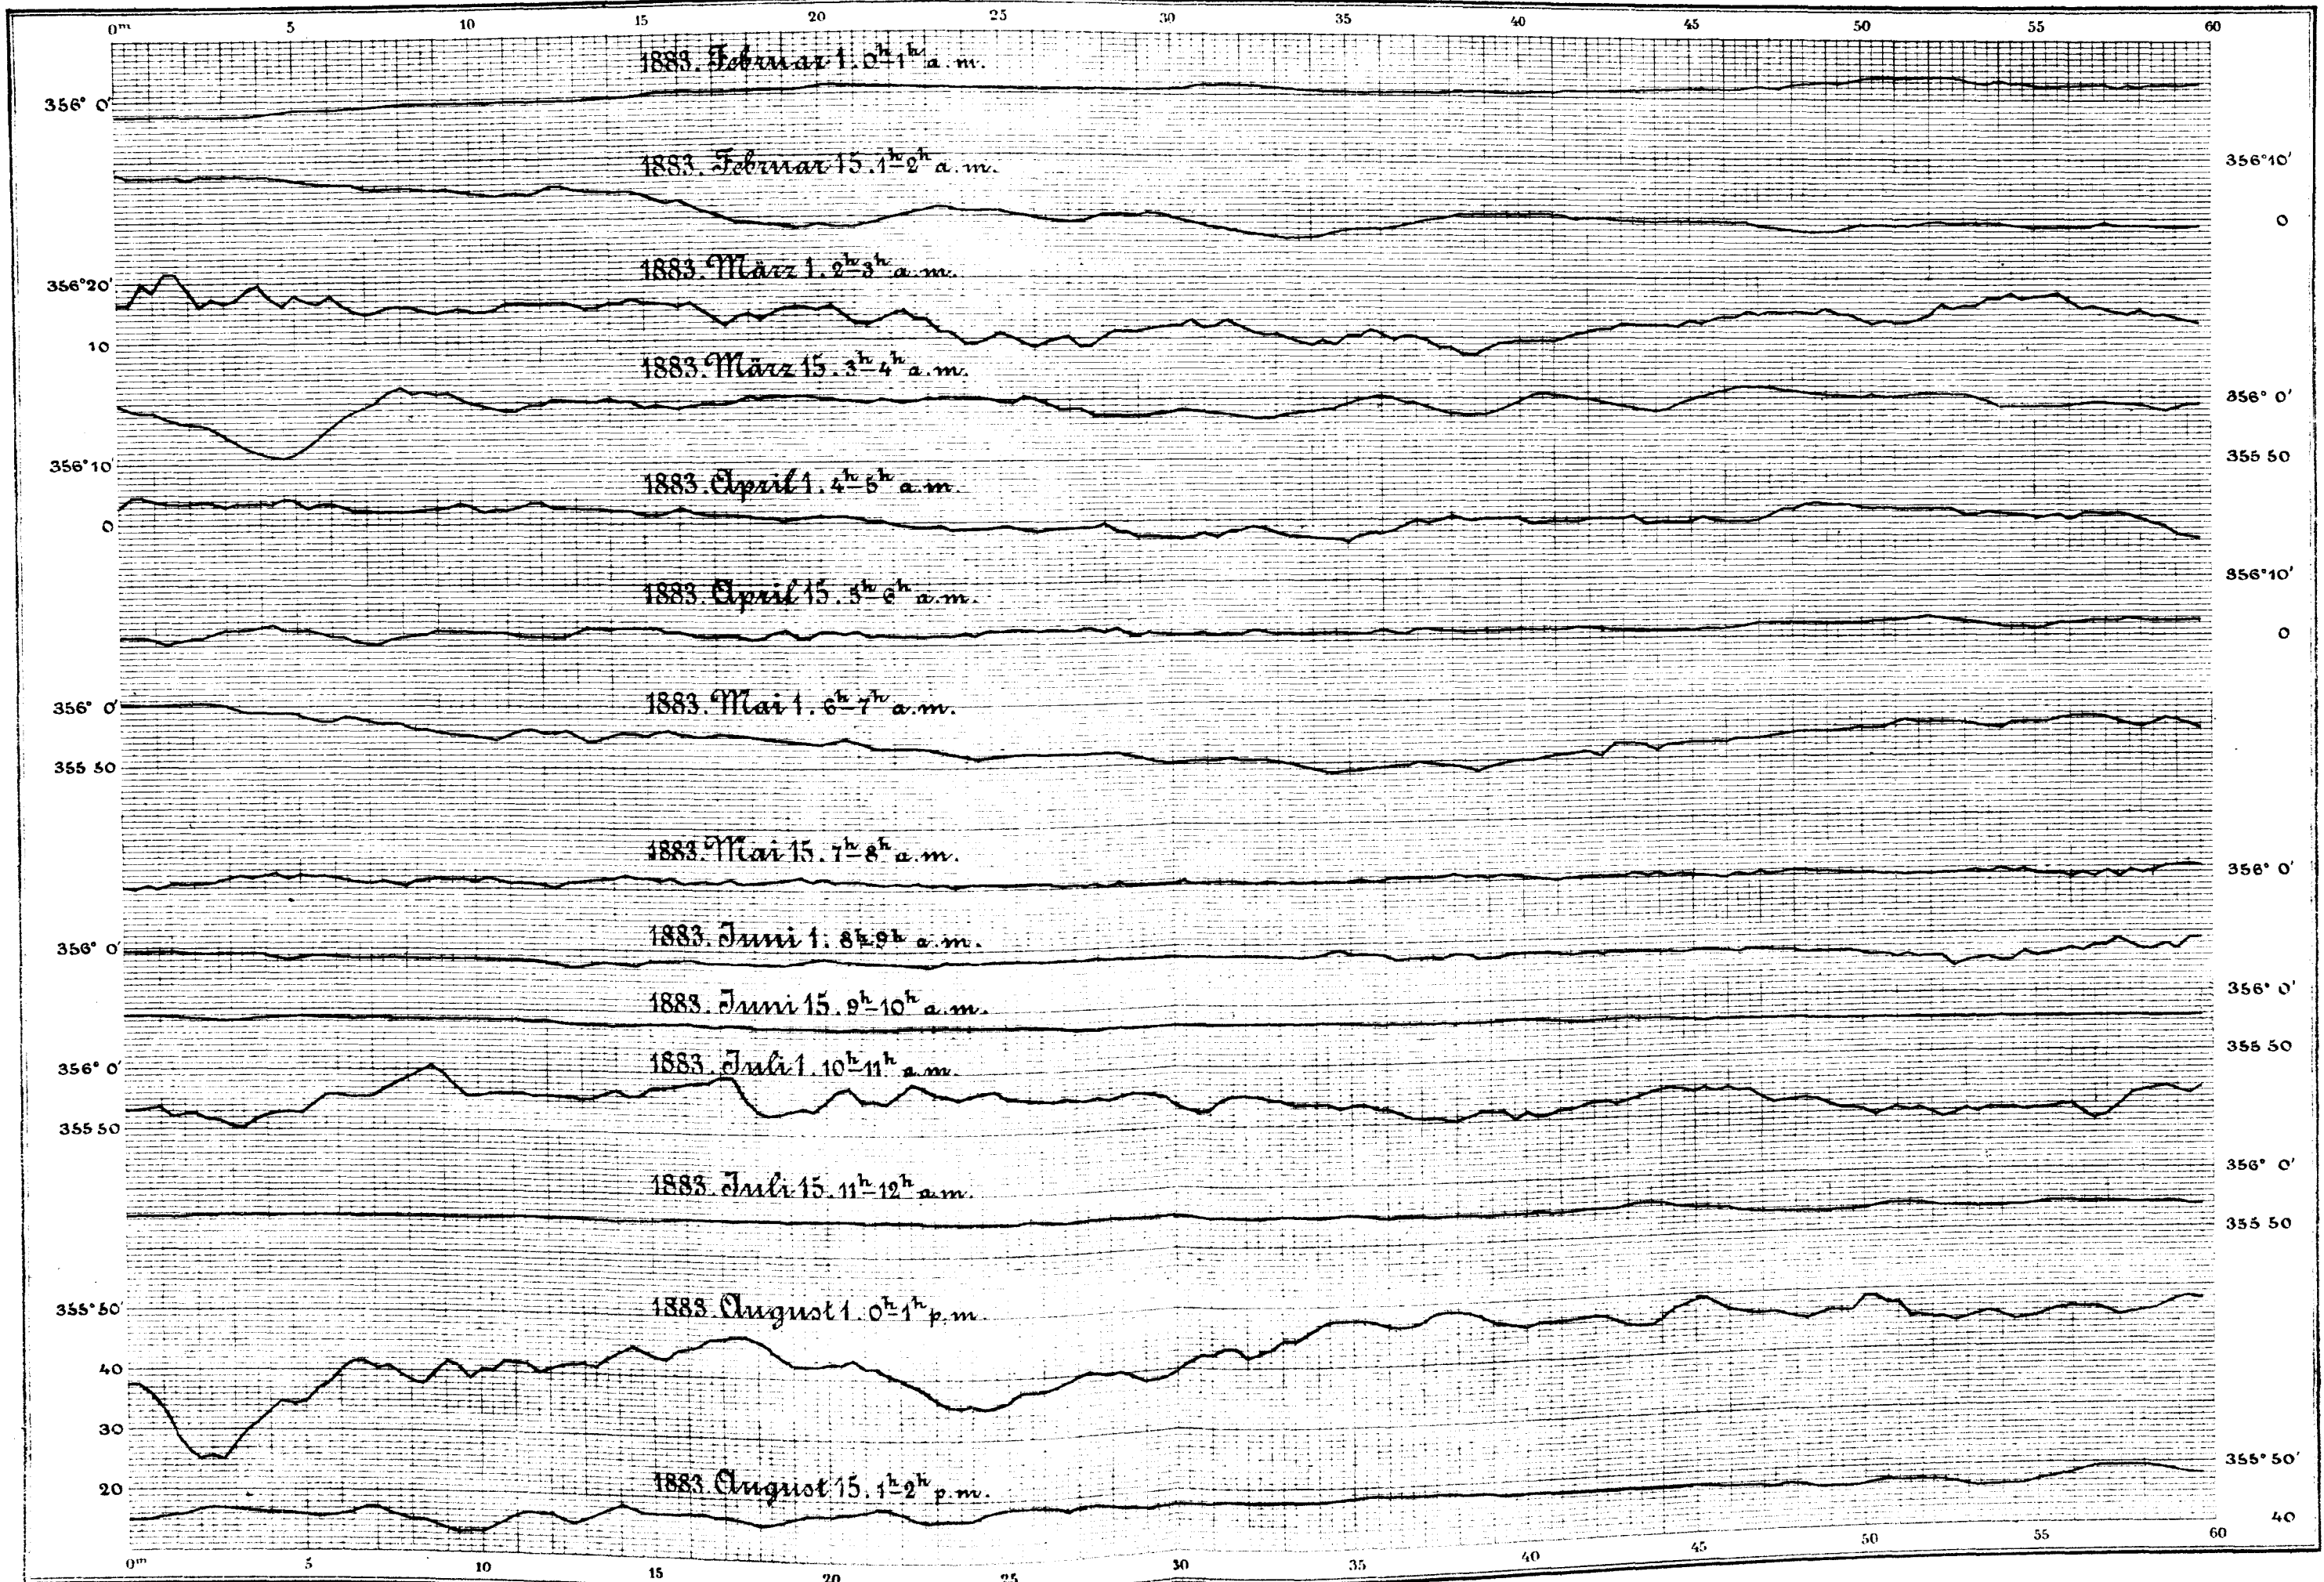 0ᵐ 5 10 15 20 25 30 35 40 45 50 55 60
1883. Februar 1. 0ʰ–1ʰ a.m.
356° 0′
1883. Februar 15. 1ʰ–2ʰ a.m.
356°10′
0
1883. März 1. 2ʰ–3ʰ a.m.
356°20′
10
1883. März 15. 3ʰ–4ʰ a.m.
356° 0′
355 50
356°10′
1883. April 1. 4ʰ–5ʰ a.m.
0
356°10′
1883. April 15. 5ʰ–6ʰ a.m.
0
356° 0′
1883. Mai 1. 6ʰ–7ʰ a.m.
355 50
1883. Mai 15. 7ʰ–8ʰ a.m.
356° 0′
1883. Juni 1. 8ʰ–9ʰ a.m.
356° 0′
1883. Juni 15. 9ʰ–10ʰ a.m.
356° 0′
355 50
1883. Juli 1. 10ʰ–11ʰ a.m.
356° 0′
355 50
1883. Juli 15. 11ʰ–12ʰ a.m.
356° 0′
355 50
1883. August 1. 0ʰ–1ʰ p.m.
355°50′
40
30
20
1883. August 15. 1ʰ–2ʰ p.m.
355°50′
40
0ᵐ 5 10 15 20 25 30 35 40 45 50 55 60